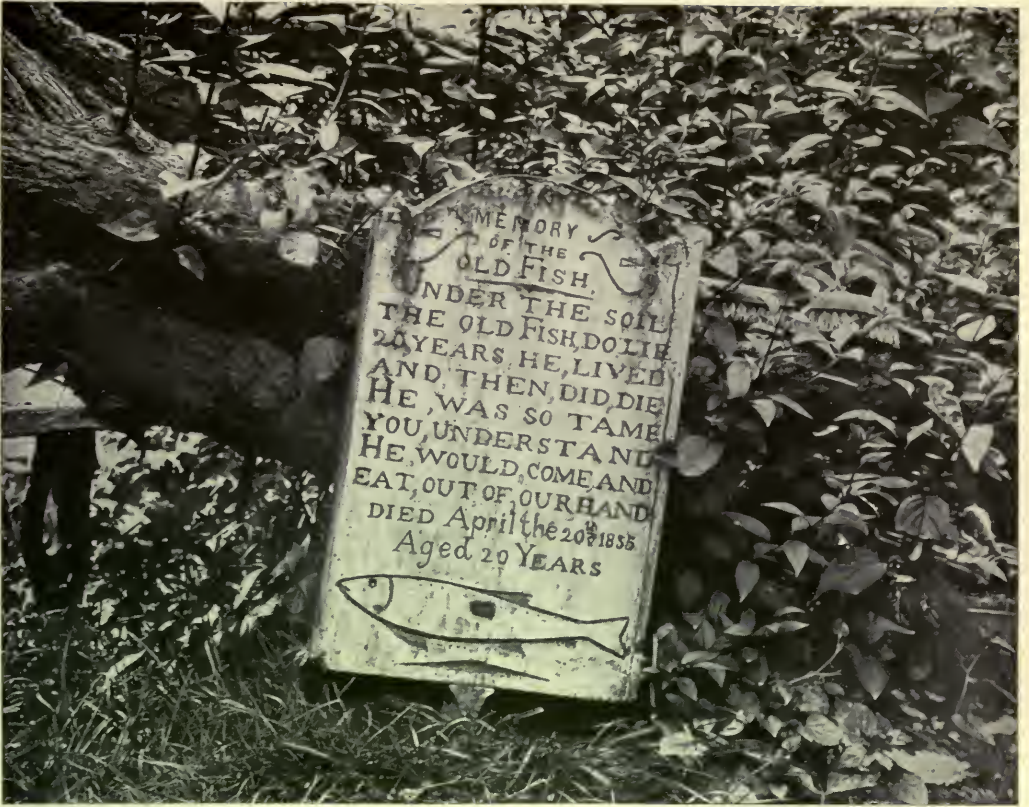 MEMORY
OF THE
OLD FISH.
UNDER THE SOIL
THE OLD FISH, DO LIE
20, YEARS, HE, LIVED
AND, THEN, DID, DIE
HE, WAS SO TAME
YOU, UNDERSTAND
HE, WOULD, COME AND
EAT, OUT OF, OUR HAND
DIED April the 20th 1855
Aged 20 YEARS